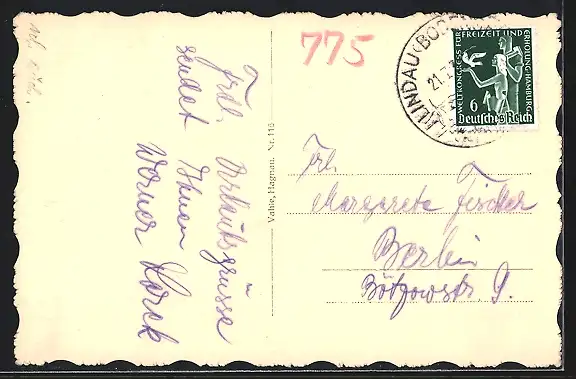 Frdl. Urlaubsgrüsse
sendet Ihnen
Werner
775
Vahle, Hagnau. Nr. 116
LINDAU (BODENSEE)
WELTKONGRESS FÜR FREIZEIT UND ERHOLUNG·HAMBURG
6
Deutsches Reich
Frl.
Margarete Fischer
Berlin
Bötzowstr. 9.